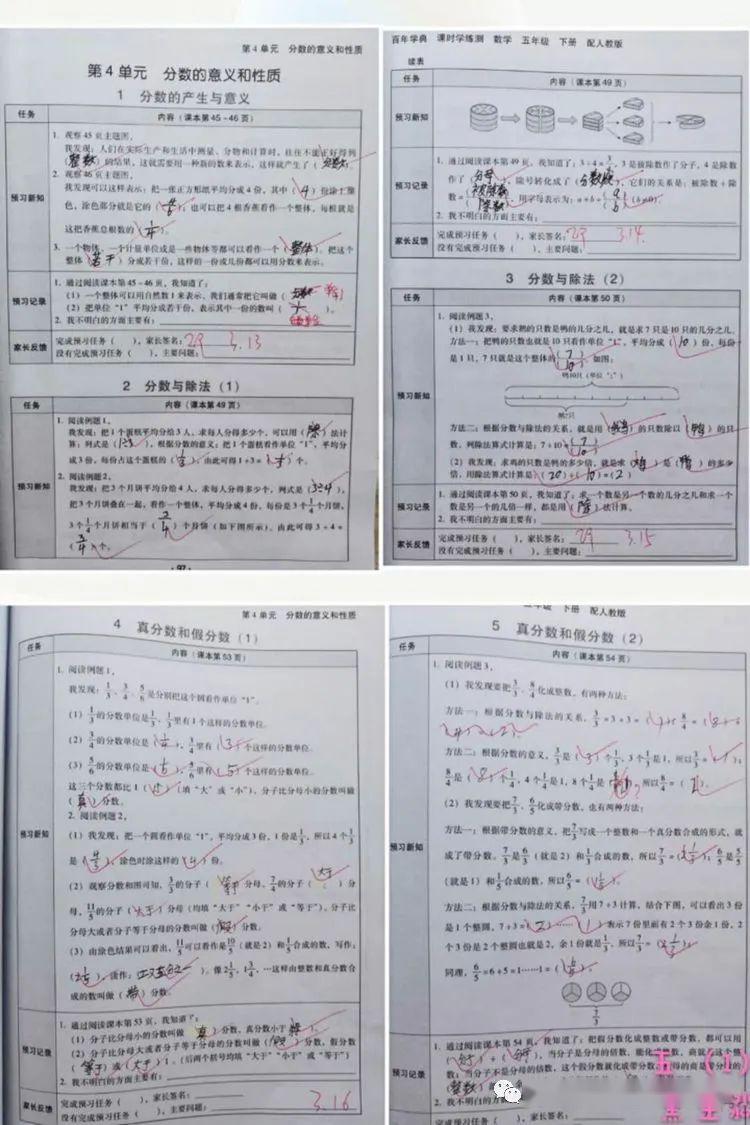 第4单元 分数的意义和性质
第4单元 分数的意义和性质
1 分数的产生与意义
任务 内容（课本第45~46页）
预习新知
1. 观察45页主题图。
我发现：人们在实际生产和生活中测量、分物和计算时，往往不能正好得到
（整数）的结果，这就需要用一种新的数来表示，这样就产生了（分数）。
2. 观察46页主题图。
我发现可以这样表示：把一张正方形纸平均分成4份，其中（4）份涂上颜
色，涂色部分就是它的（），也可以把4根香蕉看作一个整体，每根就是
这把香蕉总根数的（1/4）。
3. 一个物体、一个计量单位或是一些物体等都可以看作一个（整体）。把这个
整体（若干）分成若干份，这样的一份或几份都可以用分数来表示。
预习记录
1. 通过阅读课本第45~46页，我知道了：
（1）一个整体可以用自然数1来表示，我们通常把它叫做（
（2）把单位“1”平均分成若干份，表示其中一份的数叫（
2. 我不明白的方面主要有：
家长反馈
完成预习任务（ ），家长签名： 3.13
没有完成预习任务（ ），主要问题：
2 分数与除法（1）
任务 内容（课本第49页）
预习新知
1. 阅读例题1。
我发现：把1个蛋糕平均分给3人，求每人分得多少个，可以用（除）法计
算；列式是（1÷3）。根据分数的意义：把1个蛋糕看作单位“1”，平均分
成3份，每份占这个蛋糕的（1/3），由此可得1÷3=（1/3）个。
2. 阅读例题2。
我发现：把3个月饼平均分给4人，求每人分得多少个，列式是（3÷4），
把3个月饼叠在一起，看作一个整体，平均分成4份，每份是3个1/4个月饼，
3个1/4个月饼相当于（3/4）个月饼（如下图所示），由此可得3÷4=
（3/4）个。
百年学典 课时学练测 数学 五年级 下册 配人教版
续表
任务 内容（课本第49页）
预习新知
预习记录
1. 通过阅读课本第49页，我知道了：3÷4=3/4，3是被除数作了分子，4是除数
作了（分母），除号转化成了（分数线），它们的关系是：被除数÷除
数=（被除数/除数）。用字母表示为：a÷b=（a/b）（b≠0）。
2. 我不明白的方面主要有：
家长反馈
完成预习任务（ ），家长签名： 3.14
没有完成预习任务（ ），主要问题：
3 分数与除法（2）
任务 内容（课本第50页）
预习新知
1. 阅读例题3。
（1）我发现：要求鹅的只数是鸭的几分之几，就是求7只是10只的几分之几。
方法一：把鸭的只数也就是10只看作单位“1”，平均分成（10）份，每份
是1只，7只就是这个整体的（7/10）。如图：
鸭10只（单位“1”）
鹅7只
方法二：根据分数与除法的关系，就是用（）的只数除以（鸭）的只
数。列除法算式计算是：7÷10=（7/10）
（2）我发现：求鸡的只数是鸭的多少倍，就是求（鸡）是（鸭）的多少
倍，用除法算式计算是（20）÷（10）=（2）
预习记录
1. 通过阅读课本第50页，我知道了：求一个数是另一个数的几分之几和求一个
数是另一个的几倍一样，都是用（除）法计算。
2. 我不明白的方面主要有：
家长反馈
完成预习任务（ ），家长签名： 3.15
没有完成预习任务（ ），主要问题：
第4单元 分数的意义和性质
4 真分数和假分数（1）
任务 内容（课本第53页）
预习新知
1. 阅读例题1，
我发现：1/3、3/4、5/6是分别把这个圆看作单位“1”。
（1）1/3的分数单位是1/3，1/3里有1个这样的分数单位。
（2）3/4的分数单位是（1/4），3/4里有（3）个这样的分数单位。
（3）5/6的分数单位是（1/6），5/6里有（5）个这样的分数单位。
这三个分数都比1（小）（填“大”或“小”），分子比分母小的分数叫做
（真）分数。
2. 阅读例题2，
（1）我发现：把一个圆看作单位“1”，平均分成3份，1份是1/3，所以4个1/3
是（4/3），涂色时涂这样的（4）份。
（2）观察分数和图可知，3/3的分子（等于）分母，7/4的分子（大于）分
母，11/5的分子（大于）分母（均填“大于”“小于”或“等于”）。分子比
分母大或者分子等于分母的分数叫做（假）分数。
（3）由涂色结果可以看出，11/5可以看作是10/5（就是2）和1/5合成的数，写作：
（2 1/5），读作：（二又五分之一）。像2 1/5，1 3/4，…这样由整数和真分数合
成的数叫做（带）分数。
预习记录
1. 通过阅读课本第53页，我知道了：
（1）分子比分母小的分数叫做（真）分数，真分数小于
（2）分子比分母大或者分子等于分母的分数叫做（假）分数，假分数
（等于）或（大于）1。（后两个括号均填“大于”“小于”或“等于”）
2. 我不明白的方面主要有：
家长反馈
完成预习任务（ ），家长签名： 3.16
没有完成预习任务（ ），主要问题：
下册 配人教版
5 真分数和假分数（2）
任务 内容（课本第54页）
预习新知
1. 阅读例题3，
（1）我发现要把3/3、8/4化成整数，有两种方法：
方法一：根据分数与除法的关系，3/3=3÷3=（1），8/4=（8÷
4）=（2）。
方法二：根据分数的意义，3/3是（3）个1/3，3个1/3是1，所以3/3=（1）；
8/4是（8）个1/4，4个1/4是1，8个1/4是（），所以8/4=（2）。
（2）我发现要把7/3、6/5化成带分数，也有两种方法：
方法一：根据带分数的意义，把7/3写成一个整数和一个真分数合成的形式，就
成了带分数。7/3是6/3（就是2）和1/3合成的数，所以7/3=（2 1/3）；6/5是5/5
（就是1）和1/5合成的数，所以6/5=（1 1/5）。
方法二：根据分数与除法的关系，7/3用7÷3计算，结合下图，可以看出3份
是1个整圆，7÷3=（2）……（1）表示7份里面有2个3份余1份，2
个3份是2个整圆也就是2，余1份就是1/3，所以7/3=（2 1/3）。
同理，6/5=6÷5=1……1=（1 1/5）。
7/3
预习记录
1. 通过阅读课本第54页，我知道了：把假分数化成整数或带分数，都可以用
（分子）÷（分母），当分子是分母的倍数，能化成整数，商就是这个整
数；当分子不是分母的倍数，这个假分数就化成带分数，
（整数）
2. 我不明白的方面主要有：
家长反馈
完成预习任务（ ），家长签名：
没有完成预习任务（ ），主要问题：
五（1）